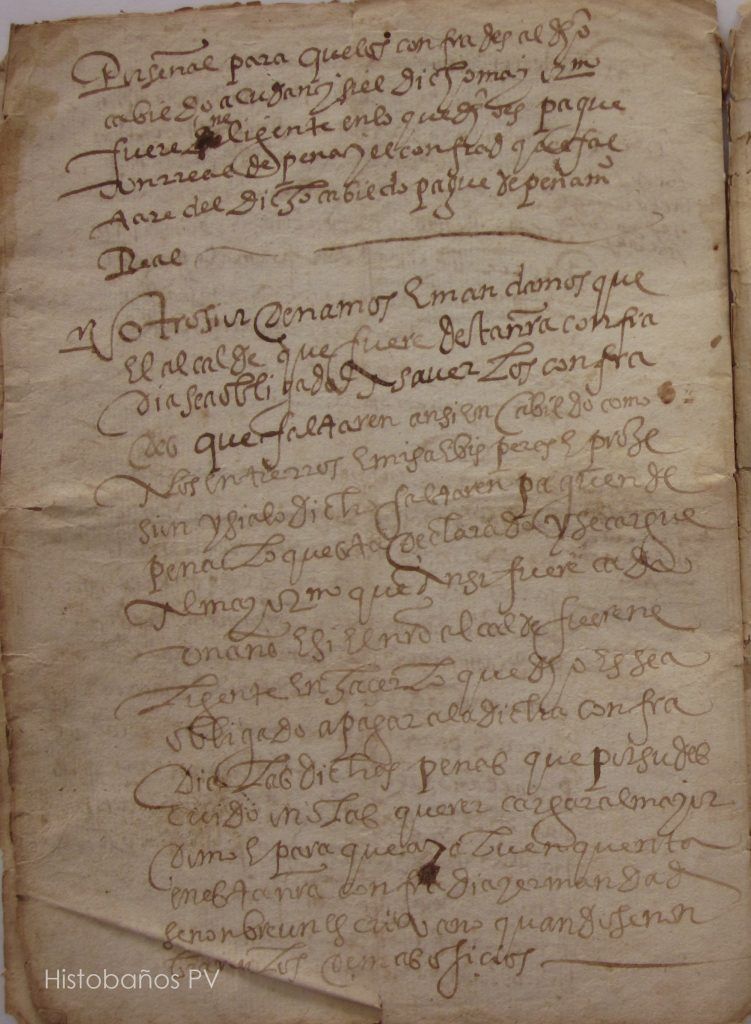 Por señal para que los confrades al dho
cabildo acudan y si el dicho mayormo
fuere neligente en lo que dho es pague
un rreal de pena y el confrad que fal
tare del dicho cabildo pague de pena m
Real
Otrosi ordenamos e mandamos que
El alcalde que fuere desta nra confra
dia sea obligado a saver los confra
des que faltaren ansi en cabildo como
a los entierros e misas bisperas e proze
sion y si a lo dicho faltaren paguen de
pena lo que esta declarado y se cargue
Al mayormo que ansi fuere cada
un año e si el nro alcalde fuere ne
ligente en hacer lo que dho es sea
obligado a pagar a la dicha confra
dia las dichas penas que por su des
cuido no las querer cargar al mayor
domo e para que aya buen quenta
en esta nra confradia y ermandad
se nonbre un escrivano quando se non
braren los demas oficios
Histobaños PV